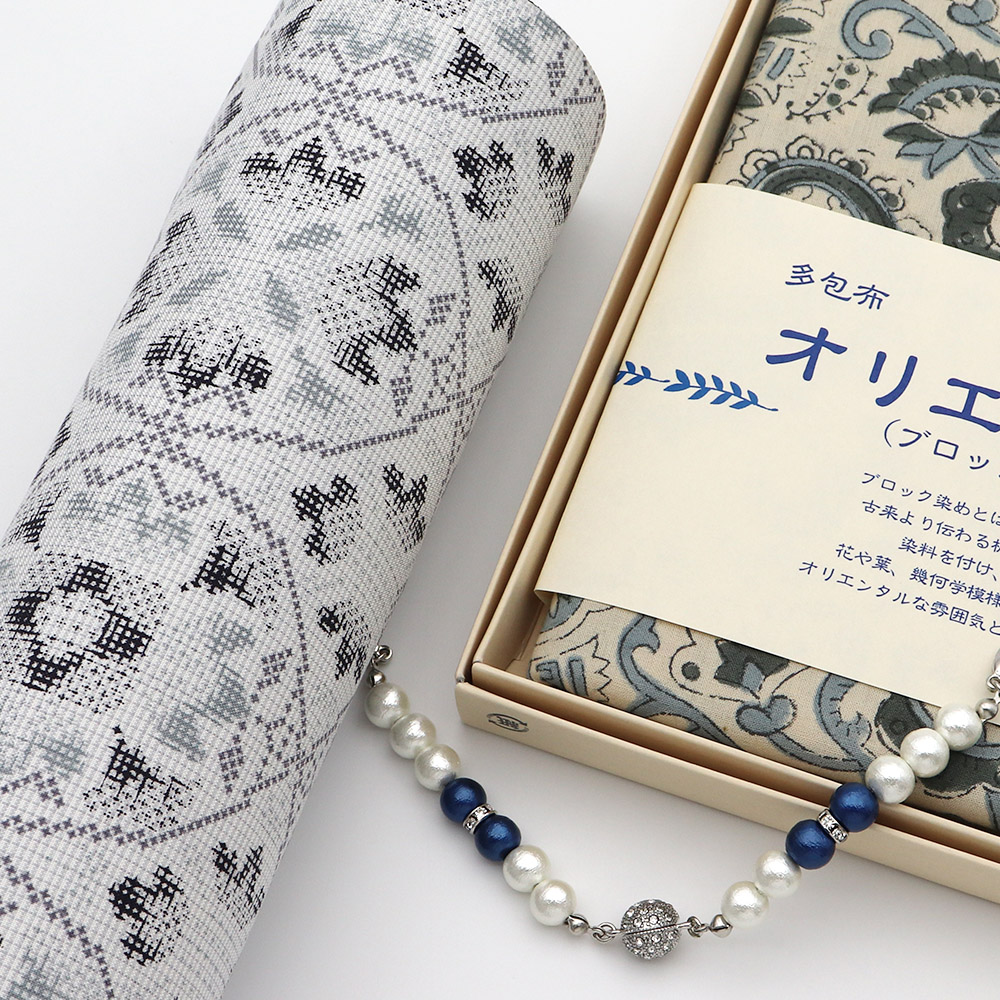 多包布
オリエ
（ブロッ
ブロック染めとは
古来より伝わる
染料を付け、
花や葉、幾何学模様
オリエンタルな雰囲気と